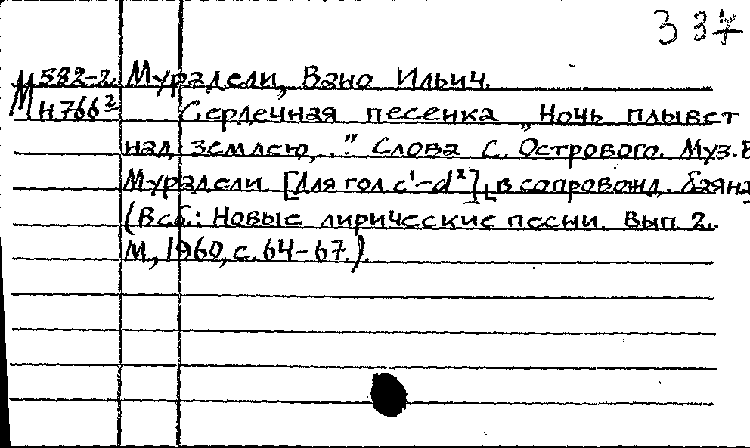 337
М 582-2 Мурадели, Вано Ильич.
Н766² Сердечная песенка „Ночь плывет
над землею,.." Слова С. Острового. Муз. В
Мурадели [Для гол. c¹-d²], в сопровожд. баяна
(В сб.: Новые лирические песни. Вып. 2.
М., 1960, с. 64-67.).